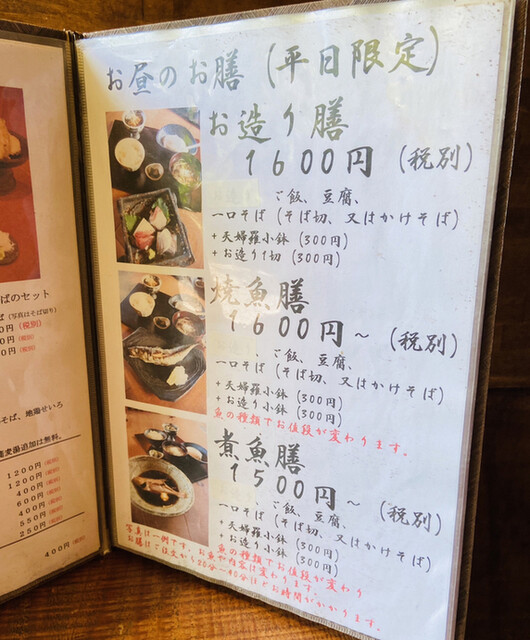 お昼のお膳(平日限定)
お造り膳
1600円(税別)
ご飯、豆腐、
一口そば(そば切、又はかけそば)
+天婦羅小鉢(300円)
+お造り1切(300円)
焼魚膳
1600円~(税別)
、ご飯、豆腐、
一口そば(そば切、又はかけそば)
+天婦羅小鉢(300円)
+お造り小鉢(300円)
魚の種類でお値段が変わります。
煮魚膳
1500円~(税別)
、ご飯、豆腐、
一口そば(そば切、又はかけそば)
+天婦羅小鉢(300円)
+お造り小鉢(300円)
魚の種類でお値段が変わり
写真は一例です。お魚や内容は変わります。
お膳はご注文から20分~40分ほどお時間がかかります。
ばのセット
(写真はそば切り)
0円(税別)
0円(税別)
0円(税別)
そば、地鶏せいろ
蕎麦湯追加は無料。
1200円(税別)
1200円(税別)
400円(税別)
600円(税別)
400円(税別)
550円(税別)
250円(税別)
400円(税別)